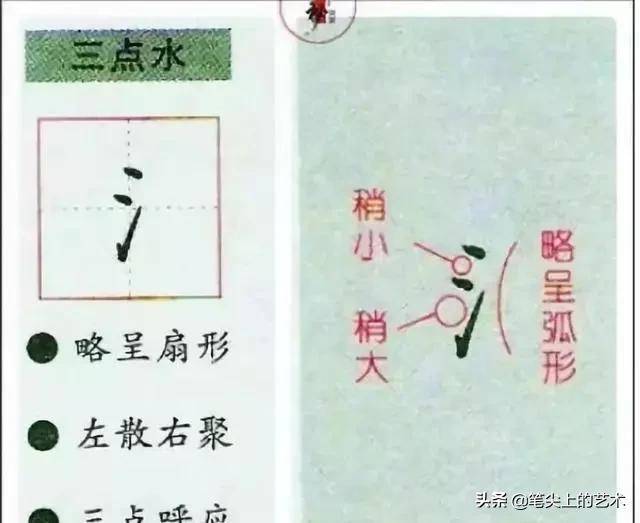 三点水
氵
略呈扇形
左散右聚
三点呼应
稍小
稍大
氵
略呈弧形
头条 @笔尖上的艺术